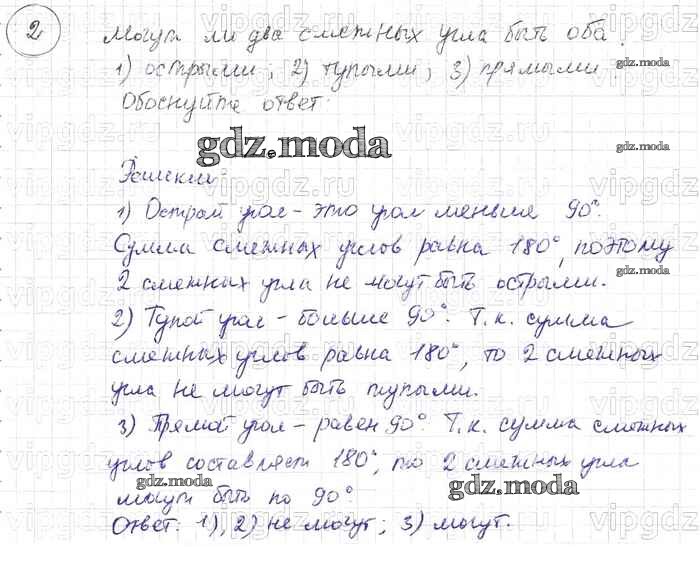 2 Могут ли два смежных угла быть оба:
1) острыми; 2) тупыми; 3) прямыми.
Обоснуйте ответ.
gdz.moda
Решение:
1) Острый угол - это угол меньше 90°.
Сумма смежных углов равна 180°, поэтому
2 смежных угла не могут быть острыми.
2) Тупой угол - больше 90°. Т.к. сумма
смежных углов равна 180°, то 2 смежных
угла не могут быть тупыми.
3) Прямой угол - равен 90°. Т.к. сумма смежных
углов составляет 180°, то 2 смежных угла
могут быть по 90°.
gdz.moda
Ответ: 1), 2) не могут; 3) могут.